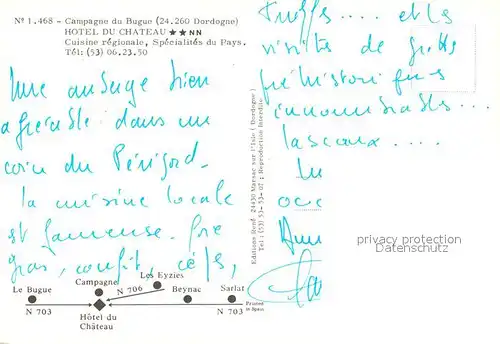 Nº 1.468 - Campagne du Bugue (24.260 Dordogne)
HOTEL DU CHATEAU ★★NN
Cuisine régionale, Spécialités du Pays.
Tél: (53) 06.23.50
Une auberge bien
agréable dans un
coin du Périgord.
la cuisine locale
est fameuse. foie
gras, confit, cèps,
truffes .... et les
visites de grottes
préhistoriques
innombrables....
lascaux ....
Editions René. 24430 Marsac sur l'Isle (Dordogne)
Tél: (53) 53-53-07; Reproduction Interdite
privacy protection
Datenschutz
Le Bugue
Campagne
N 706
Les Eyzies
Beynac
Sarlat
N 703
Hôtel du
Château
N 703
Printed
in Spain